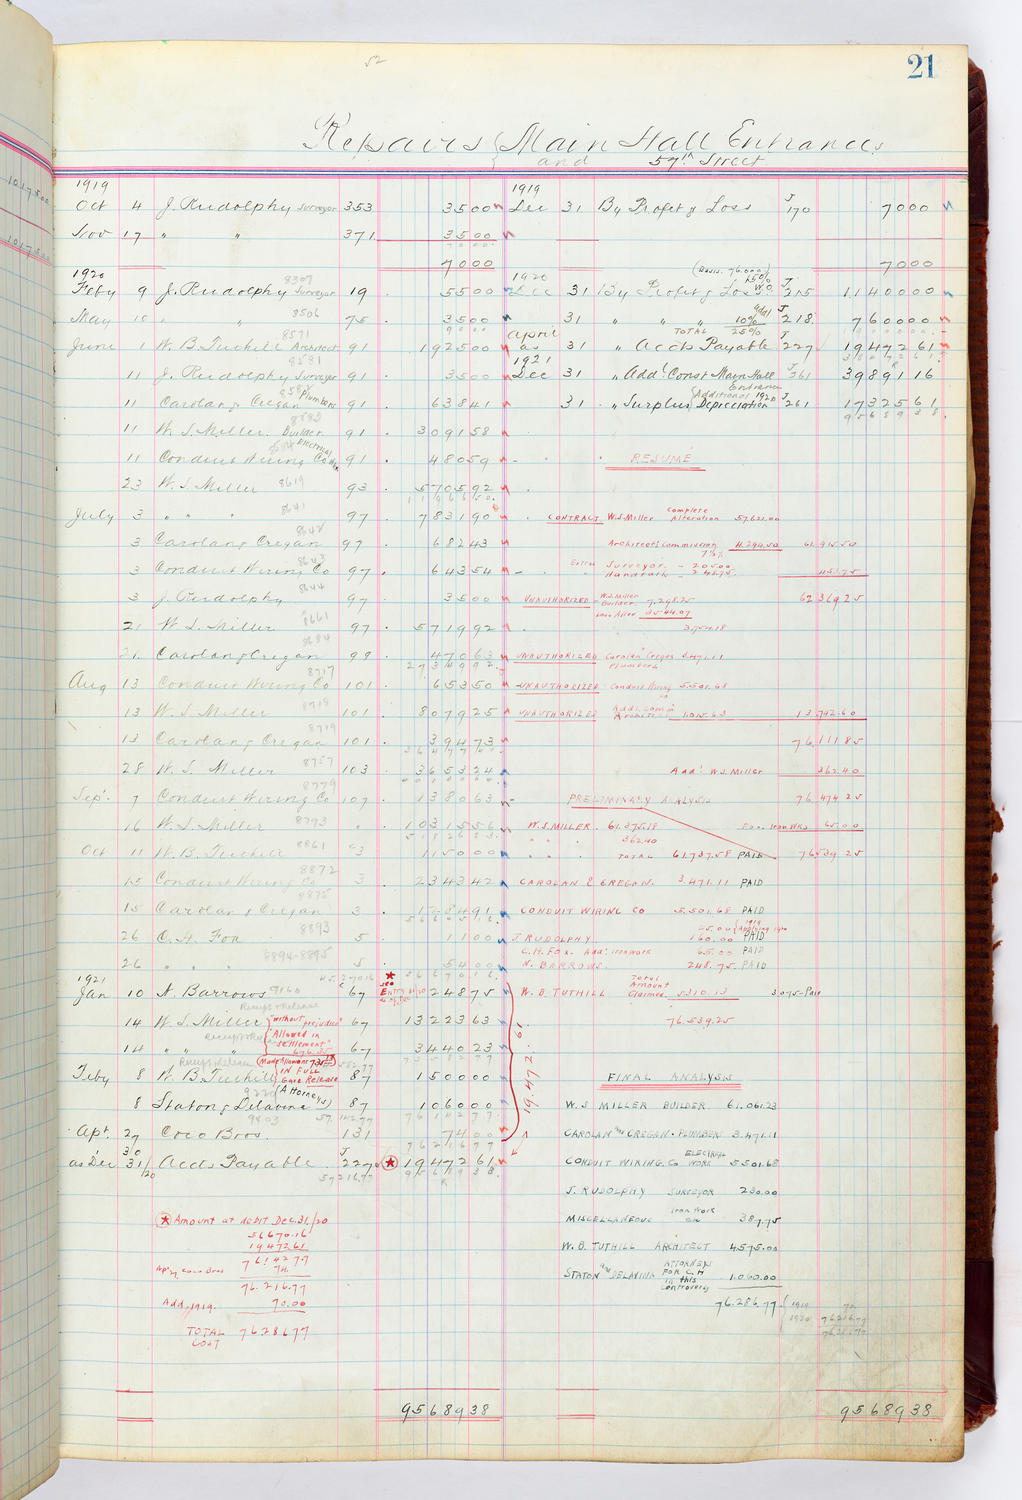 52
21
Repairs { Main Hall Entrances
and 57th Street
1919
Oct 4 J. Rudolphy Surveyor 353 3500
Nov 17 " " 371 3500
7000
1920
8307
Feby 9 J. Rudolphy Surveyor 19 5500
8506
May 10 " " 75 3500
8571
June 1 W. B. Tuthill Architect 91 192500
8581
11 J. Rudolphy Surveyor 91 3500
11 Carolan & Cregan Plumbers 91 63841
11 W. S. Miller. Builder 91 309158
11 Conduit Wiring Co Electrical 91 48059
23 W. S. Miller 8619 93 570592
July 3 " " " 8641 97 783190
8642
3 Carolan & Cregan 97 68243
8643
3 Conduit Wiring Co 97 64354
8644
3 J. Rudolphy 97 3500
8661
21 W. S. Miller 97 571992
21 Carolan & Cregan 99 47063
8717
Aug 13 Conduit Wiring Co 101 65350
8718
13 W. S. Miller 101 807925
8719
13 Carolan & Cregan 101 39473
8757
28 W. S. Miller 103 365324
8779
Sep. 7 Conduit Wiring Co 107 138063
16 W. S. Miller 8793 " 1031556
Oct 11 W. B. Tuthill 8861 3 115000
8872
15 Conduit Wiring Co 3 234342
8875
15 Carolan & Cregan 3 128491
8893
26 C. H. Fox 5 1100
8894-8895
26 " " " 5 5400
1921
Jan 10 N. Barrows 9160 67 24875
Receipt & Release
14 W. S. Miller "without prejudice" 67 1322363
"Allowed in settlement"
14 " " " 67 344023
Receipt & Release
Feby 8 W. B. Tuthill IN FULL Gave Release 87 150000
(Attorneys)
8 Staton & Delavine 87 106000
Apr. 27 Coco Bros. 131 7400
as Dec 31/20 Accts Payable J 227 1947261
★ see Entry
★ Amount at debit Dec. 31/20
56670.16
19472.61
76142.77
Apr 27 Coco Bros 74.
76.216.77
Add. 1919. 70.00
TOTAL COST 76.286.77
9568938
1919
Dec 31 By Profit & Loss J 170 7000
7000
(Basis. 76.000)
1920
Dec 31 By Profit & Loss J 215 1140000
31 " " " add'l 10% J 218 760000
TOTAL 25%
April
as 31 " Accts Payable J 227 1947261
1921
Dec 31 " Addl. Const Main Hall Entrance J 261 3989116
(Additional 1920
31 " Surplus Depreciation J 261 1732561
RESUME
CONTRACT W. S. Miller Complete Alteration 57.621.00
Architect's Commission 7½% 4.294.50 61.915.50
Extras Surveyor. - 205.00
Handrails - 248.75. 453.75
62.369.25
UNAUTHORIZED - W. S. Miller Builder. 7.298.25
Less Allow 3544.07
3754.18
UNAUTHORIZED Carolan & Cregan 3.471.11
Plumbers
UNAUTHORIZED Conduit Wiring Co 5.501.68
UNAUTHORIZED Addl. Comm Architect 1.015.63 13.742.60
76.111.85
Add' W. S. Miller 362.40
PRELIMINARY ANALYSIS 76.474.25
W. S. MILLER. 61.375.18 Fox. Iron Wks 65.00
" " " 362.40
" " " TOTAL 61.737.58 PAID 76539.25
CAROLAN & CREGAN. 3.471.11 PAID
CONDUIT WIRING CO 5.501.68 PAID
25.00 { 1919 applying 1920
J. RUDOLPHY 160.00 PAID
C. H. Fox - Add' Ironwork 65.00 PAID
N. BARROWS. 248.75. PAID
W. B. TUTHILL Total Amount Claimed. 5.310.13 3.075 - Paid
76.539.25
19.472.61
FINAL ANALYSIS
W. S MILLER BUILDER. 61.061.23
CAROLAN and CREGAN. PLUMBERS 3.471.11
CONDUIT WIRING. Co ELECTRICAL WORK 5501.68
J. RUDOLPHY SURVEYOR 230.00
MISCELLANEOUS Iron Work 387.75
W. B. TUTHILL ARCHITECT 4575.00
STATON and DELAVINE ATTORNEYS FOR C. H in this controversy 1.060.00
76.286.77 { 1919 70
1920 76216.77
76286.77
9568938